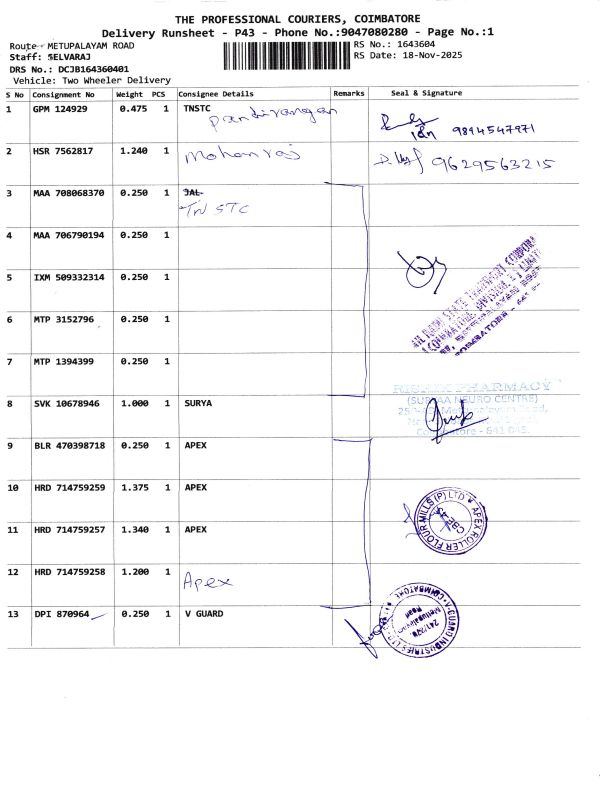 THE PROFESSIONAL COURIERS, COIMBATORE
Delivery Runsheet - P43 - Phone No.:9047080280 - Page No.:1
Route- METUPALAYAM ROAD
Staff: SELVARAJ
DRS No.: DCJB164360401
Vehicle: Two Wheeler Delivery
RS No.: 1643604
RS Date: 18-Nov-2025
S No Consignment No Weight PCS Consignee Details Remarks Seal & Signature
1 GPM 124929 0.475 1 TNSTC
Pandirangan
9894547971
2 HSR 7562817 1.240 1 Mohanraj 9629563215
3 MAA 708068370 0.250 1 JAL
TN STC
4 MAA 706790194 0.250 1
5 IXM 509332314 0.250 1
6 MTP 3152796 0.250 1
7 MTP 1394399 0.250 1
8 SVK 10678946 1.000 1 SURYA
PHARMACY
NEURO CENTRE)
9 BLR 470398718 0.250 1 APEX
10 HRD 714759259 1.375 1 APEX
APEX ROLLER FLOUR MILLS (P) LTD
11 HRD 714759257 1.340 1 APEX
12 HRD 714759258 1.200 1 Apex
13 DPI 870964 0.250 1 V GUARD
V-GUARD INDUSTRIES LTD
COIMBATORE
Mettupalayam
Road